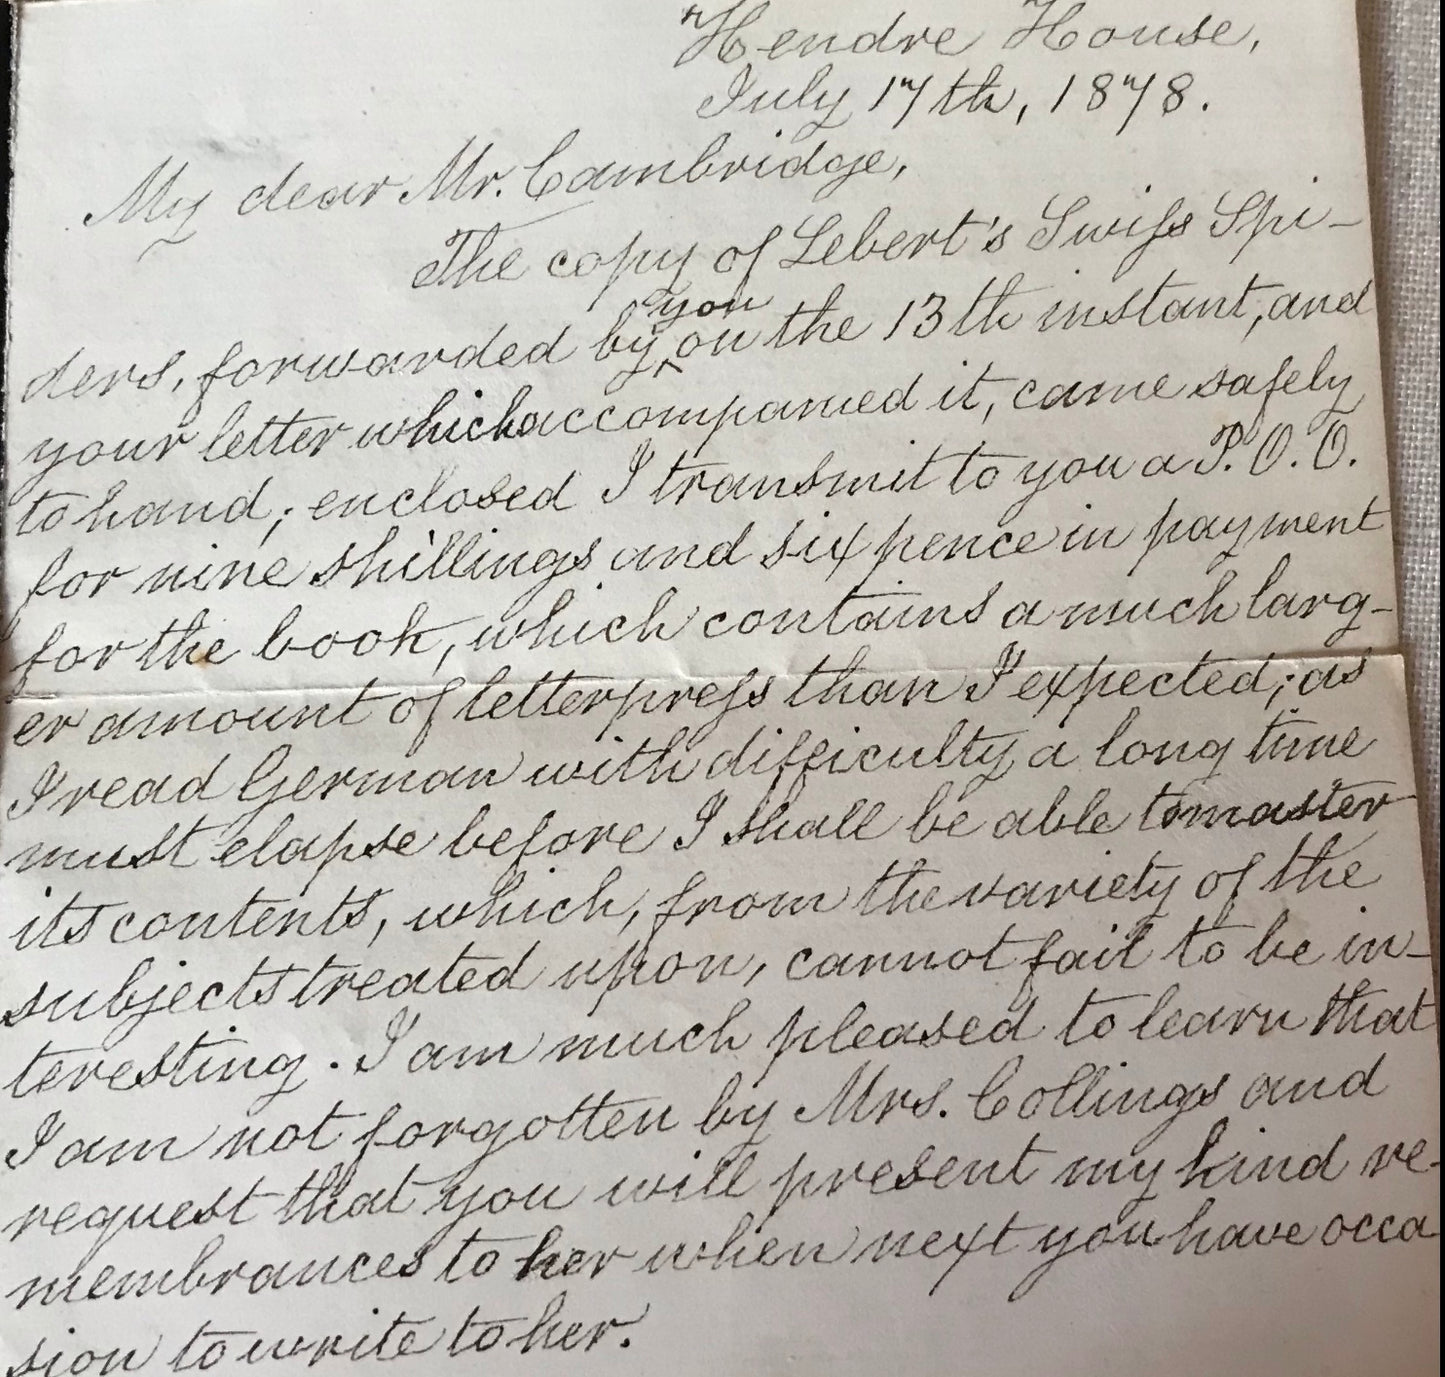 Hendre House,
July 17th, 1878.
My dear Mr. Cambridge,
The copy of Lebert's Swiſs Spi-
you
ders, forwarded by ‸ on the 13th instant, and
your letter which accompanied it, came safely
to hand; enclosed I transmit to you a P.O.O.
for nine shillings and six pence in payment
for the book, which contains a much larg-
er amount of letterpreſs than I expected; as
I read German with difficulty a long time
must elapse before I shall be able to master
its contents, which, from the variety of the
subjects treated upon, cannot fail to be in-
teresting. I am much pleased to learn that
I am not forgotten by Mrs. Collings and
request that you will present my kind re-
membrances to her when next you have occa
sion to write to her.